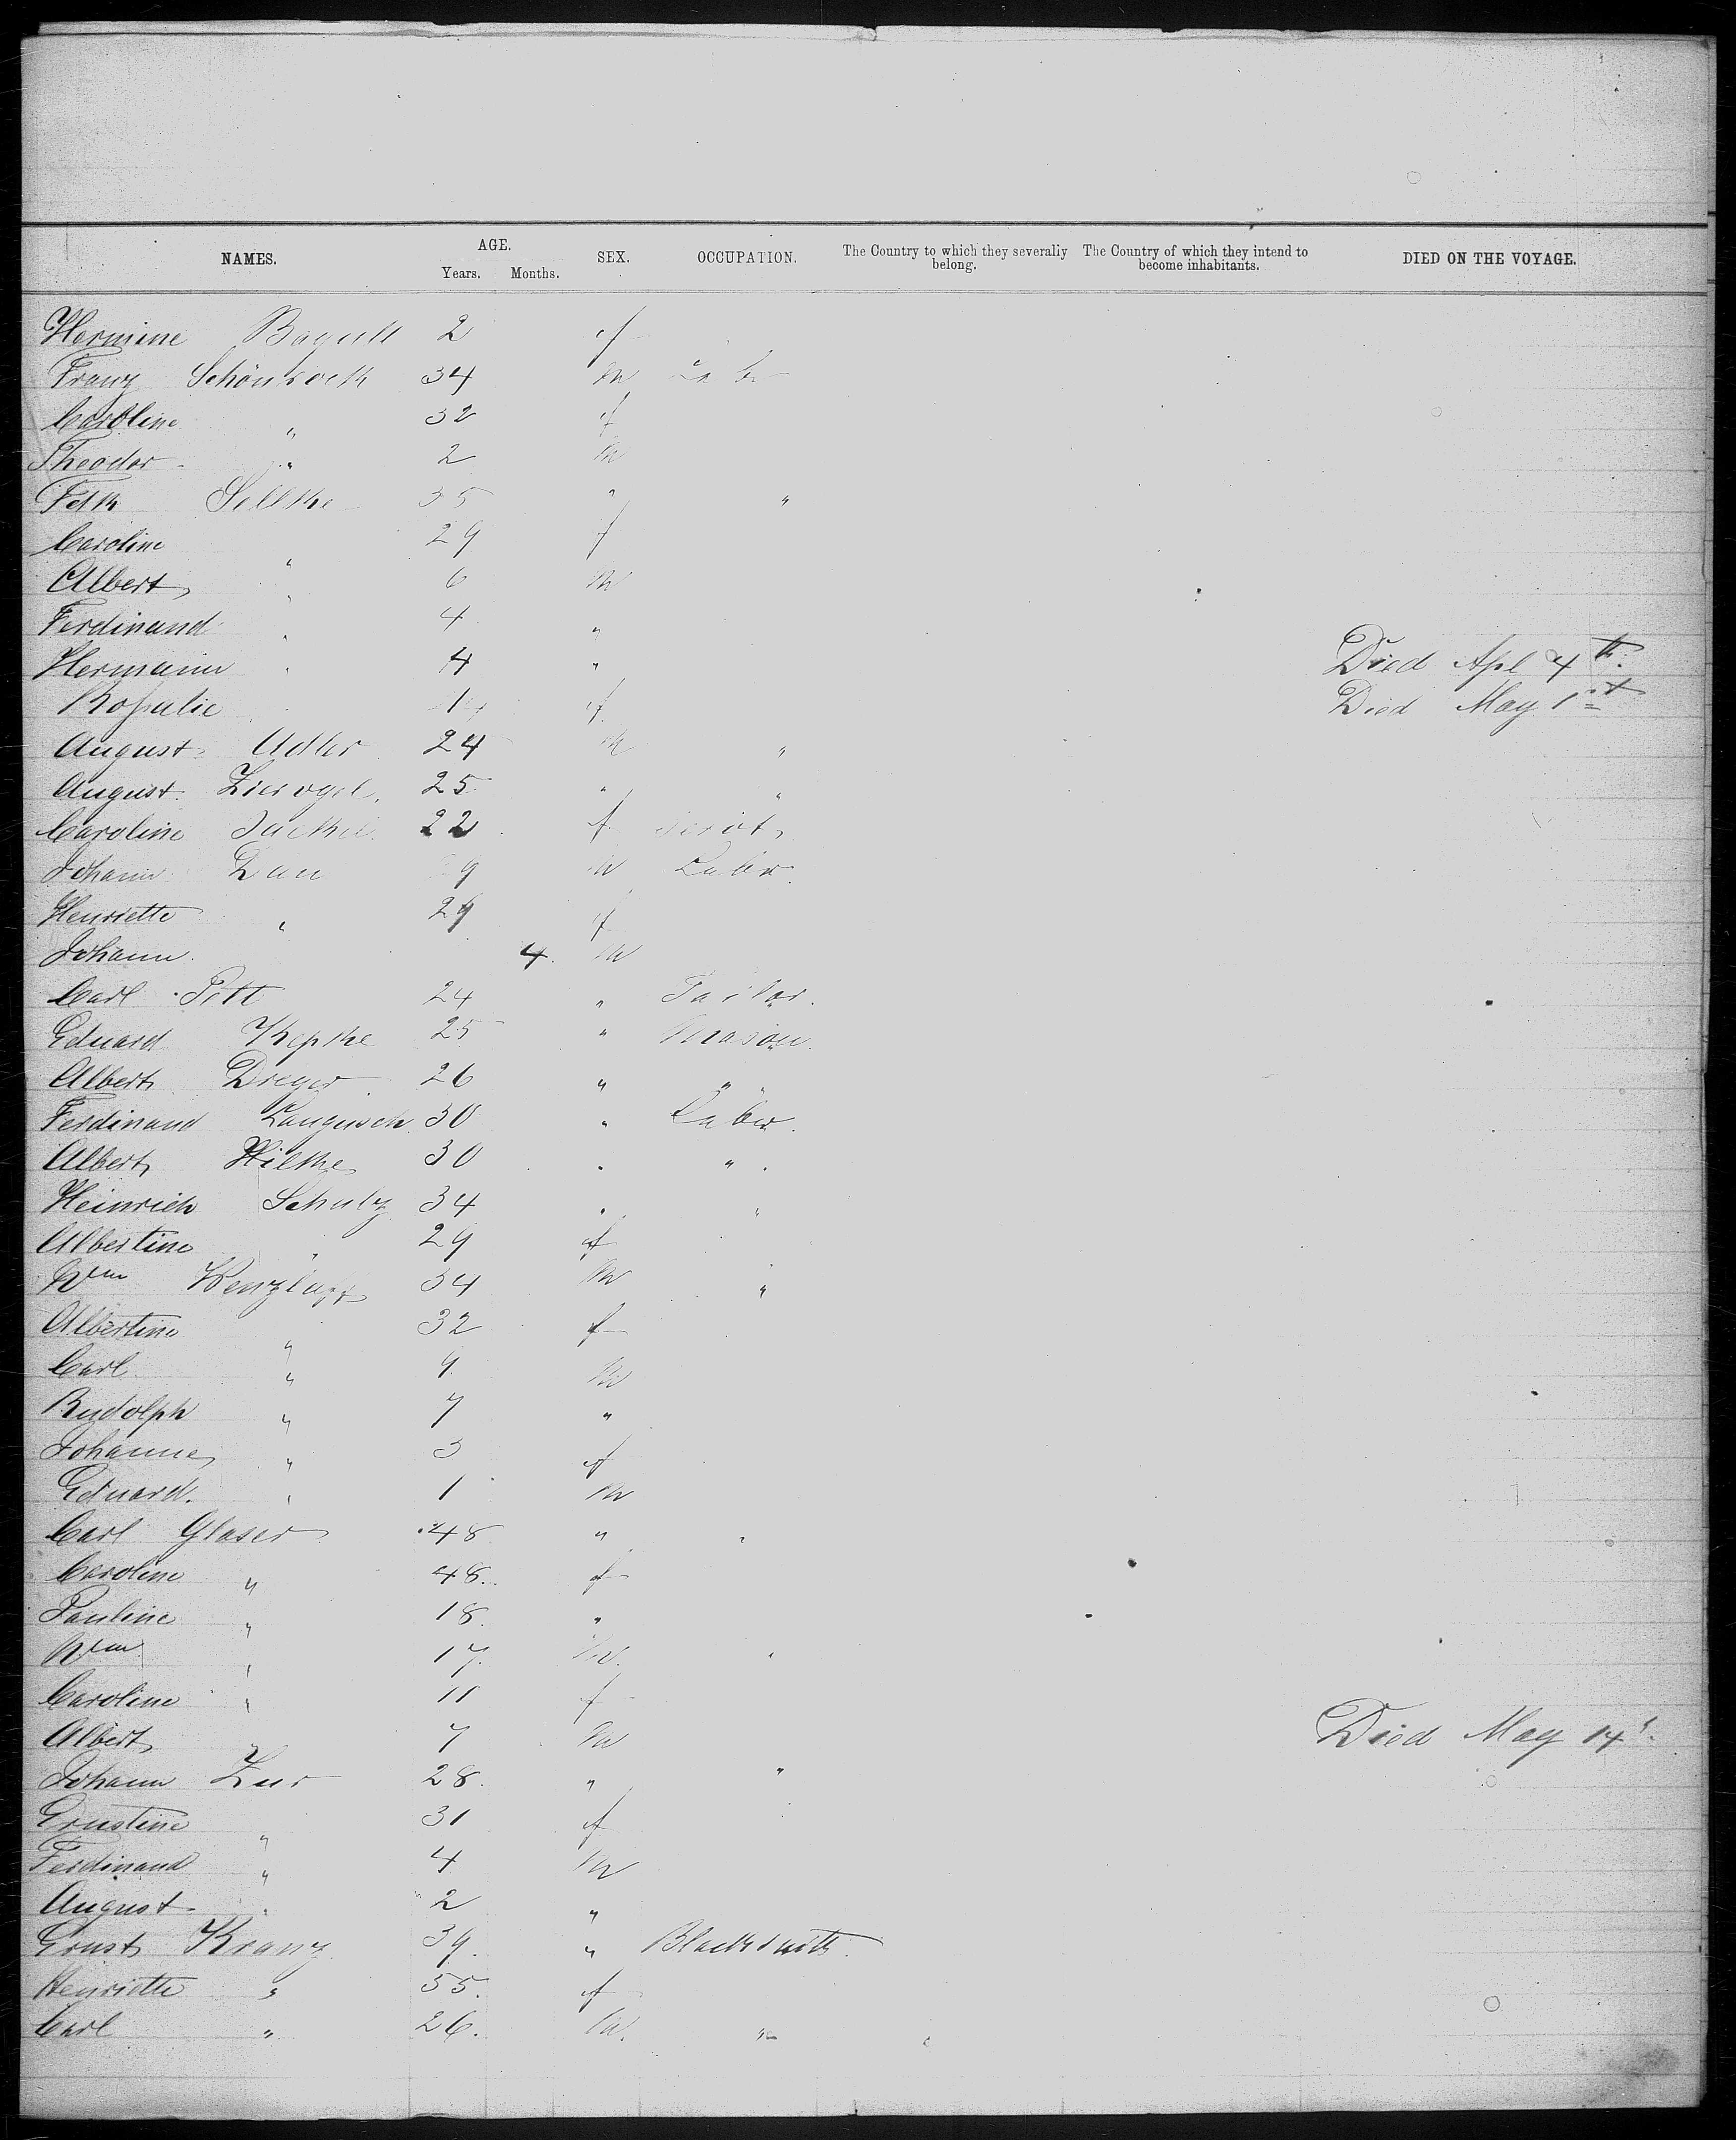 NAMES. AGE. Years. Months. SEX. OCCUPATION. The Country to which they severally belong. The Country of which they intend to become inhabitants. DIED ON THE VOYAGE.
Hermine 2 f
Franz Schönrock 34 m Labr
Caroline " 32 f
Theodor " 2 m
Selkke 35 " "
Caroline " 29 f
Albert " 6 m
Ferdinand " 4 "
Hermann " 4 " Died Apl 4th.
Rosalie 1 f Died May 1st
August Adler 24 m "
August Ziervogel. 25 " "
Caroline 22 f Servt
Johann Zau 9 m Labr.
Henriette " 29 f
Johann. 4. m
Carl Pett 24 " Tailor.
Eduard Kepke 25 " Mason.
Albert Dreger 26 " "
Ferdinand 30 " Labr.
Albert Hilke 30 " "
Heinrich Schulz 34 " "
Albertine " 29 f
Wm Wenzlaff 34 m "
Albertine " 32 f
Carl " 9 m
Rudolph " 7 "
Johanne " 3 f
Eduard. " 1 m
Carl Glaser 48 " "
Caroline " 48. f
Pauline " 18. "
Wm " 17. m. "
Caroline " 11 f
Albert " 7 m Died May 14
Johann Zur 28. " "
Ernstine " 31 f
Ferdinand " 4 m
August " 2 "
Ernst Kranz 39. " Blacksmith.
Henriette " 55. f
Carl " 26. m. "